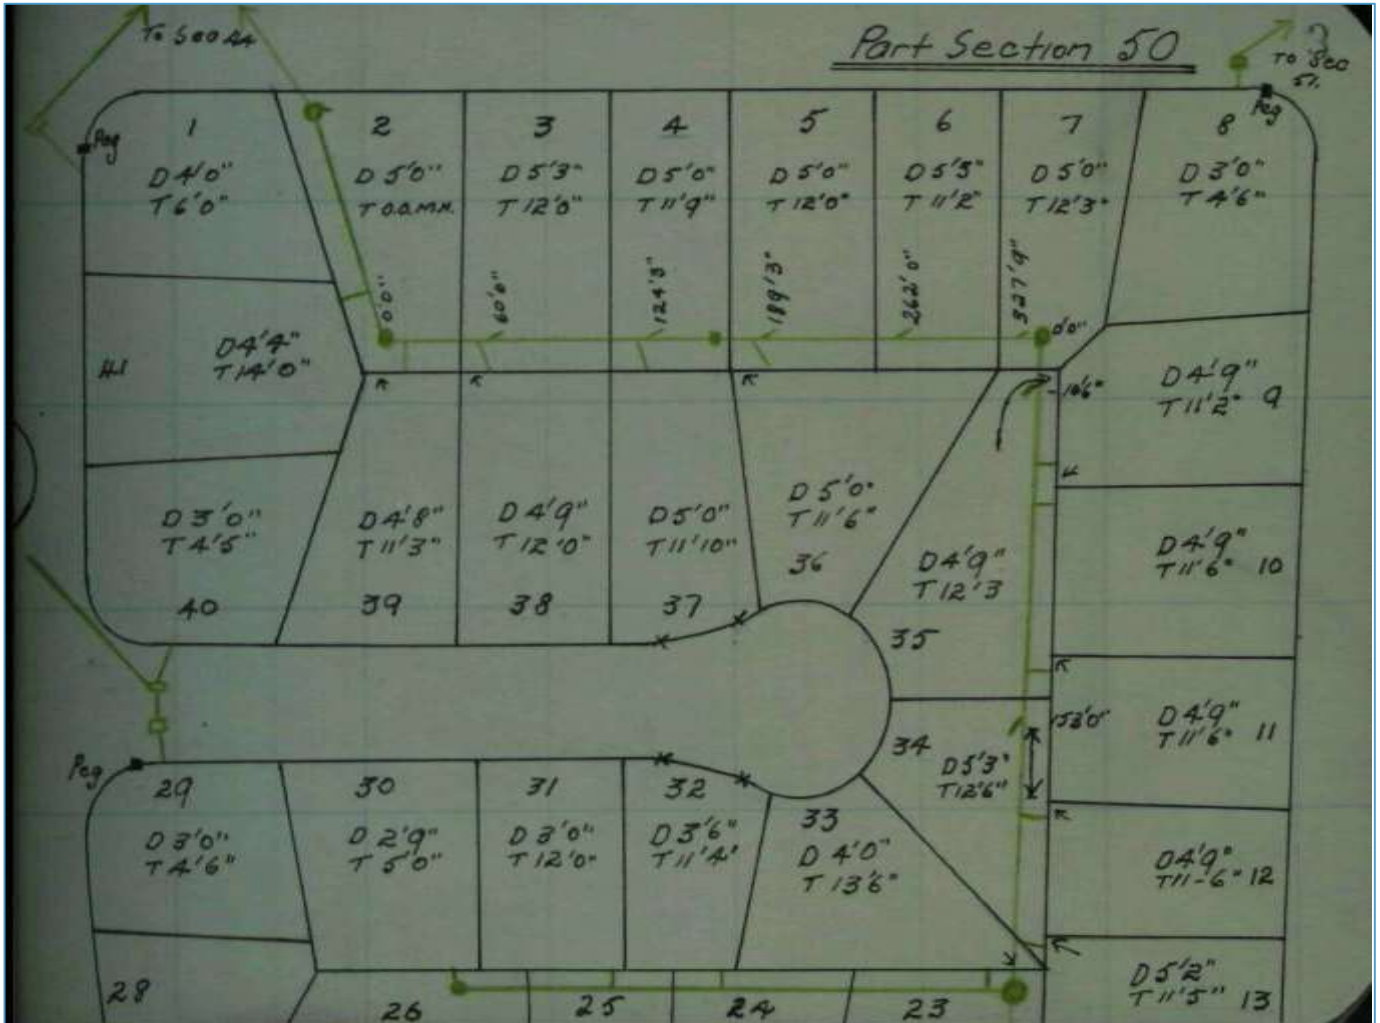 Part Section 50
To Sec
51.
Peg
Peg
1
D 4'0"
T 6'0"
2
D 5'0"
T O.O.M.H.
3
D 5'3"
T 12'0"
4
D 5'0"
T 11'9"
5
D 5'0"
T 12'0"
6
D 5'5"
T 11'2"
7
D 5'0"
T 12'3"
8
D 3'0"
T 4'6"
0'0"
60'0"
124'3"
189'3"
262'0"
327'9"
0'0"
10'6"
41
D 4'4"
T 14'0"
D 4'9"
T 11'2" 9
D 3'0"
T 4'5"
40
D 4'8"
T 11'3"
39
D 4'9"
T 12'0"
38
D 5'0"
T 11'10"
37
D 5'0"
T 11'6"
36
D 4'9"
T 12'3
35
D 4'9"
T 11'6" 10
D 4'9"
T 11'6" 11
153'0"
34
D 5'3"
T 12'6"
Peg
29
D 3'0"
T 4'6"
30
D 2'9"
T 5'0"
31
D 3'0"
T 12'0"
32
D 3'6"
T 11'4"
33
D 4'0"
T 13'6"
D 4'9"
T 11-6" 12
D 5'2"
T 11'5" 13
28
26
25
24
23